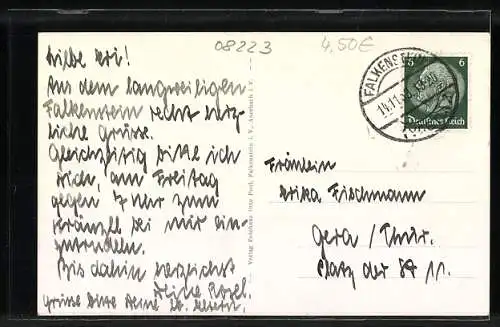 08223
4,50€
Liebe Eri!
Aus dem langweiligen
Falkenstein recht herz-
liche Grüsse.
Gleichzeitig bitte ich
Dich, am Freitag
gegen 7 Uhr zum
Kränzel bei mir ein-
zutrudeln.
Bis dahin verzeichst
Deine
Grüsse bitte Deine lb. Eltern.
FALKENSTEIN
14.11.
6 6
Deutsches Reich
Fräulein
Erika Fischmann
Gera / Thür.
Platz der SA 11.